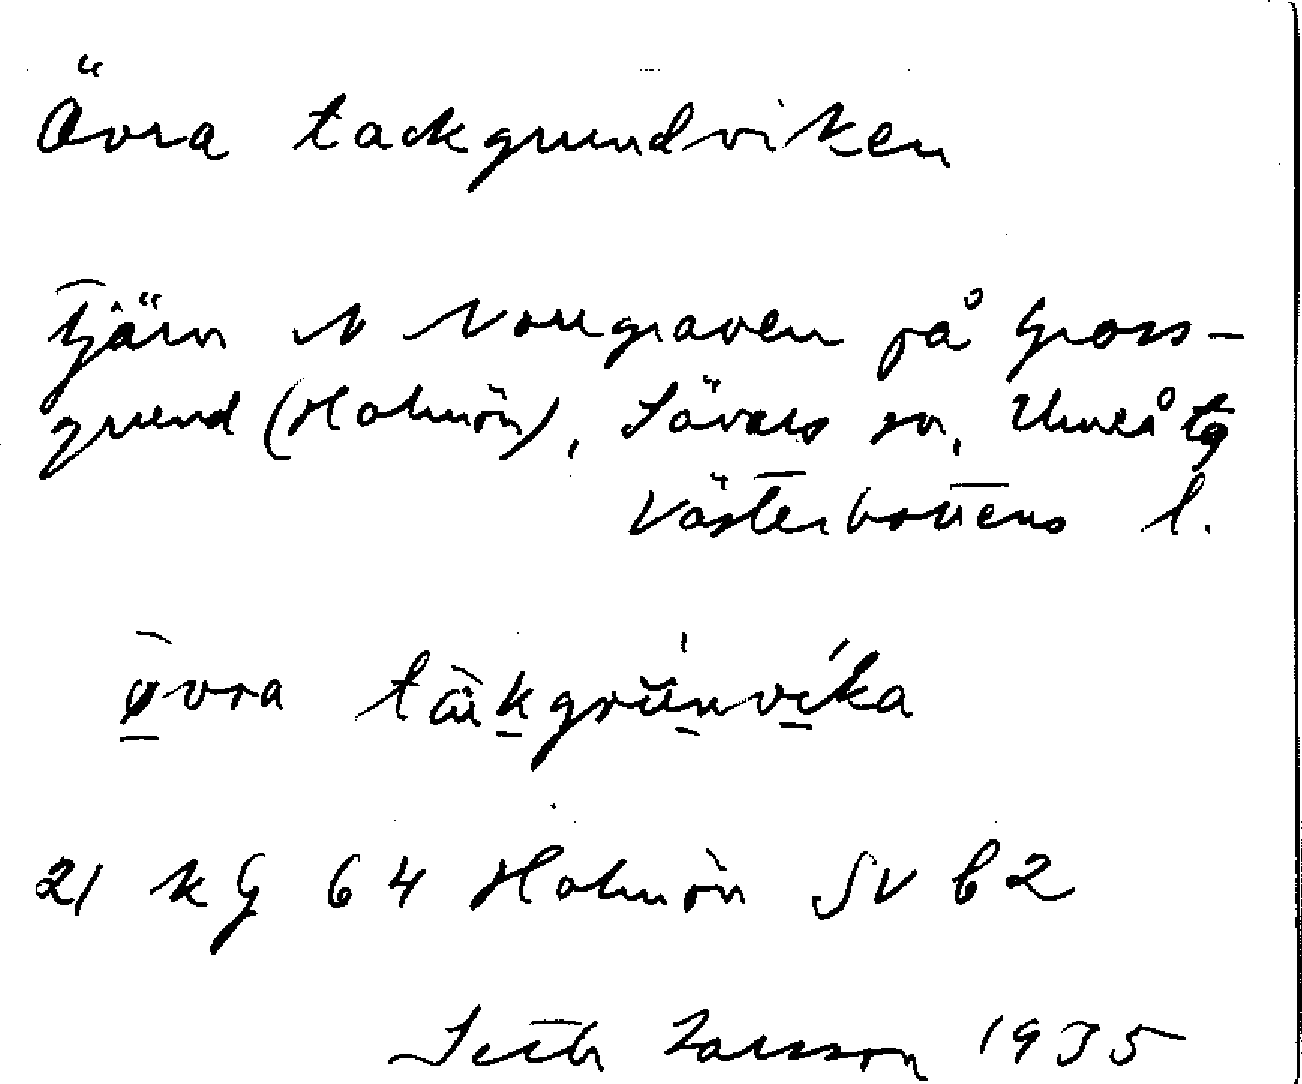 Övra tackgrundviken
Tjärn N Norrgraven på Gross-
grund (Holmön), Sävars sn, Umeå tg
Västerbottens l.
øvra takgrunvika
21 K G 64 Holmön SV b 2
Seth Larsson 1935